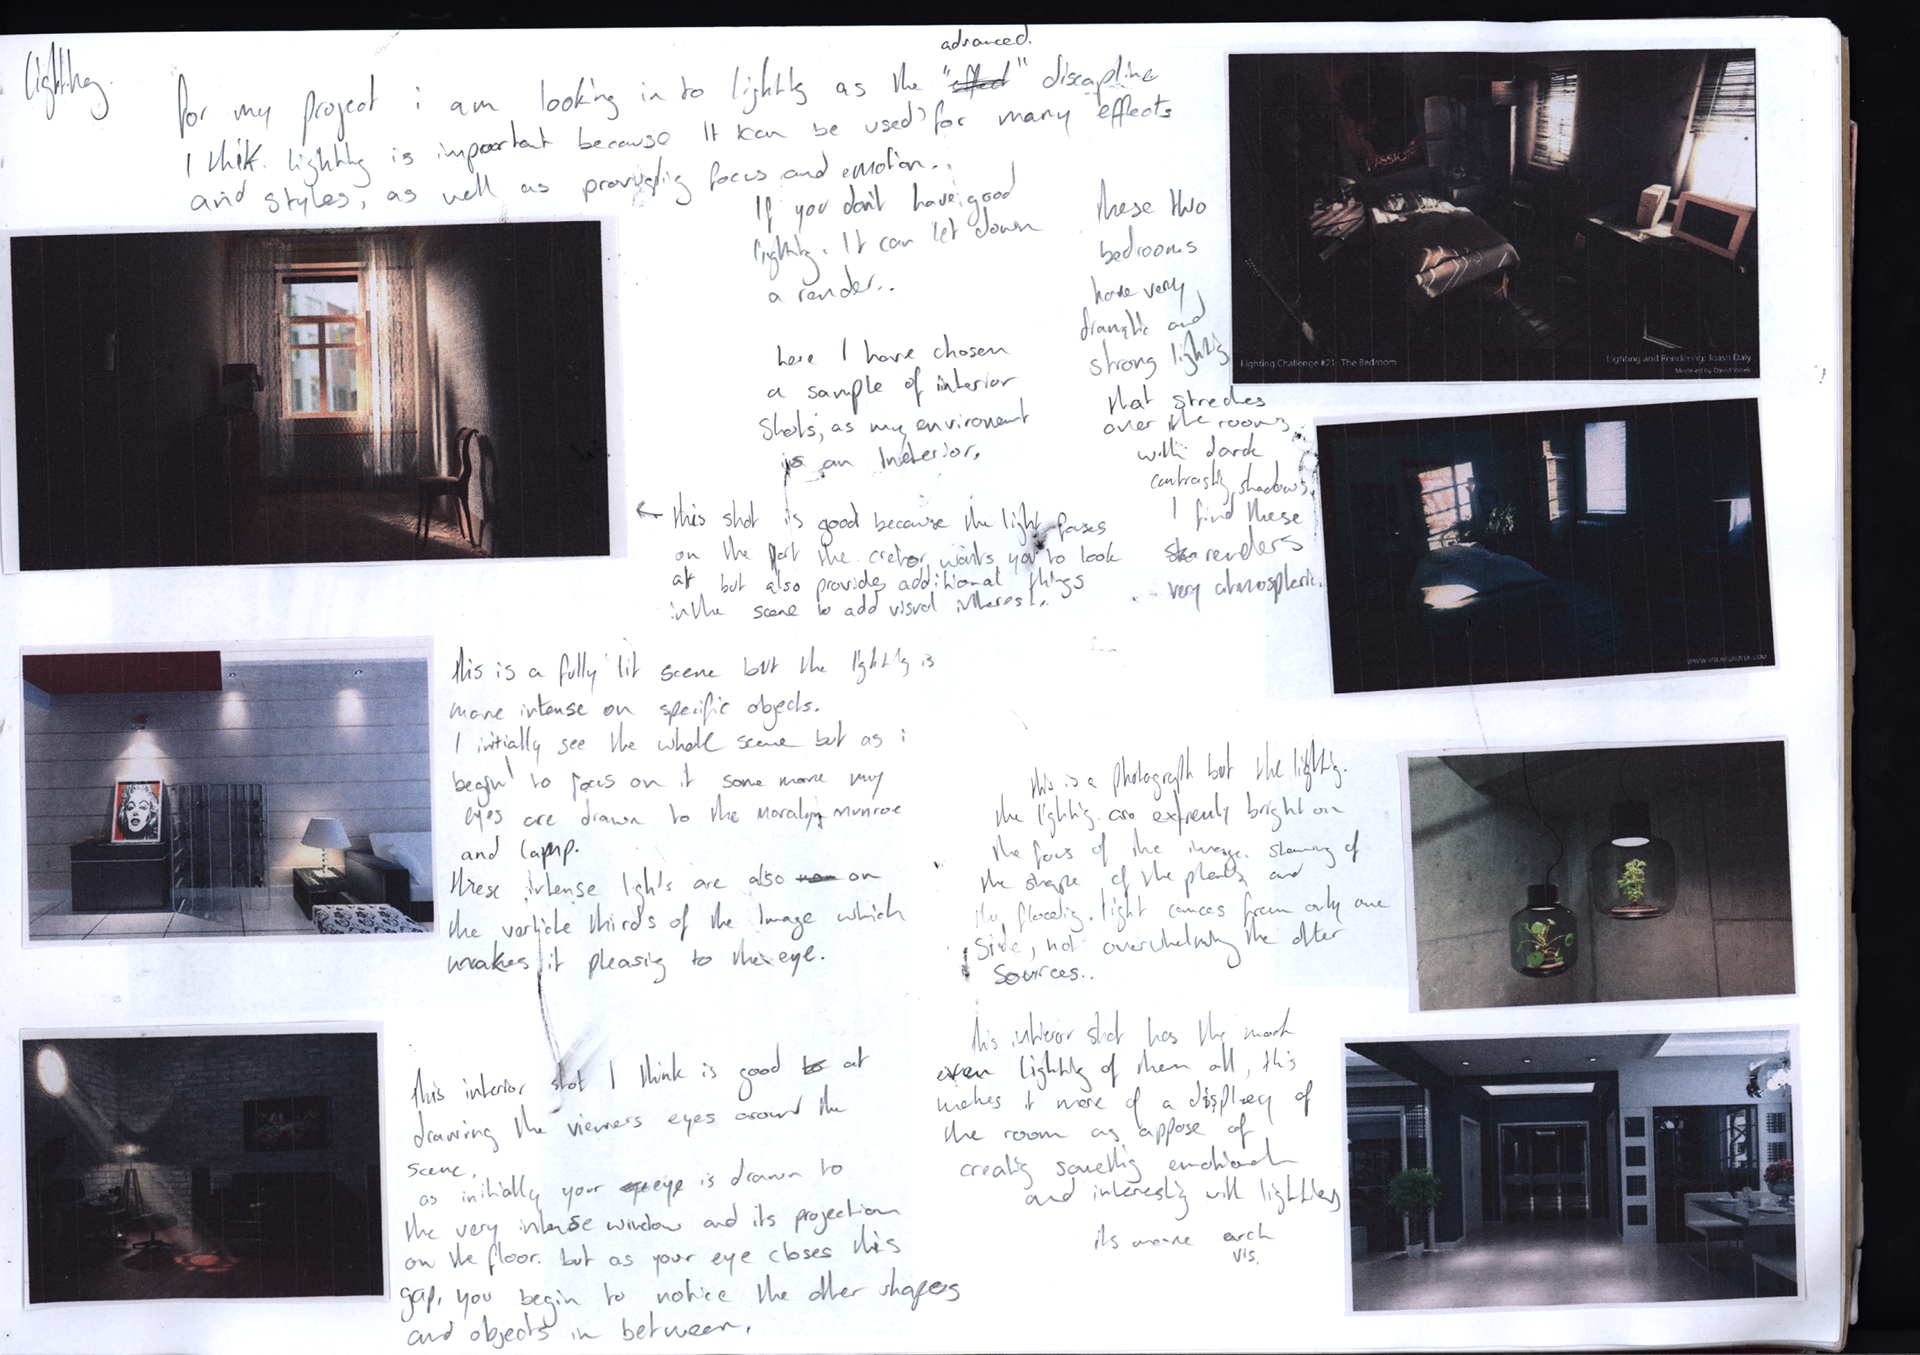 lighting.
advanced.
for my project i am looking in to lighting as the "effect" discapline
I think lighting is important because it can be used for many effects
and styles, as well as providing focus and emotion..
If you don't have good
lighting. It can let down
a render..
here I have chosen
a sample of interior
shots, as my enviroment
is an Interior.
← this shot is good because the light focuses
on the part the creator wants you to look
at but also provides additional things
in the scene to add visual interest.
these two
bedrooms
have very
dramatic and
strong lighting
that streches
over the rooms
with dark
contrasting shadows.
I find these
renders
very atmospheric.
PASSION
Lighting Challenge #21: The Bedroom
Lighting and Rendering: Joash Daly
Modeled by David Vacek
this is a fully lit scene but the lighting is
more intense on specific objects.
I initially see the whole scene but as i
begin to focus on it some more my
eyes are drawn to the Maralyn munroe
and lamp.
these intense lights are also on
the verticle thirds of the Image which
makes it pleasing to the eye.
this is a photograph but the lighting.
the lighting are extremly bright on
the focus of the image. showing of
the shape of the plants and
the light comes from only one
side, not overwhelming the other
sources..
this interior shot I think is good at
drawing the viewers eyes around the
scene,
as initially your eye is drawn to
the very intense window and its projection
on the floor. but as your eye closes this
gap, you begin to notice the other shapes
and objects in between.
this interior shot has the most
even lighting of them all, this
makes it more of a display of
the room as appose of
creating something emotional
and interesting with lighting
its more arch
vis.